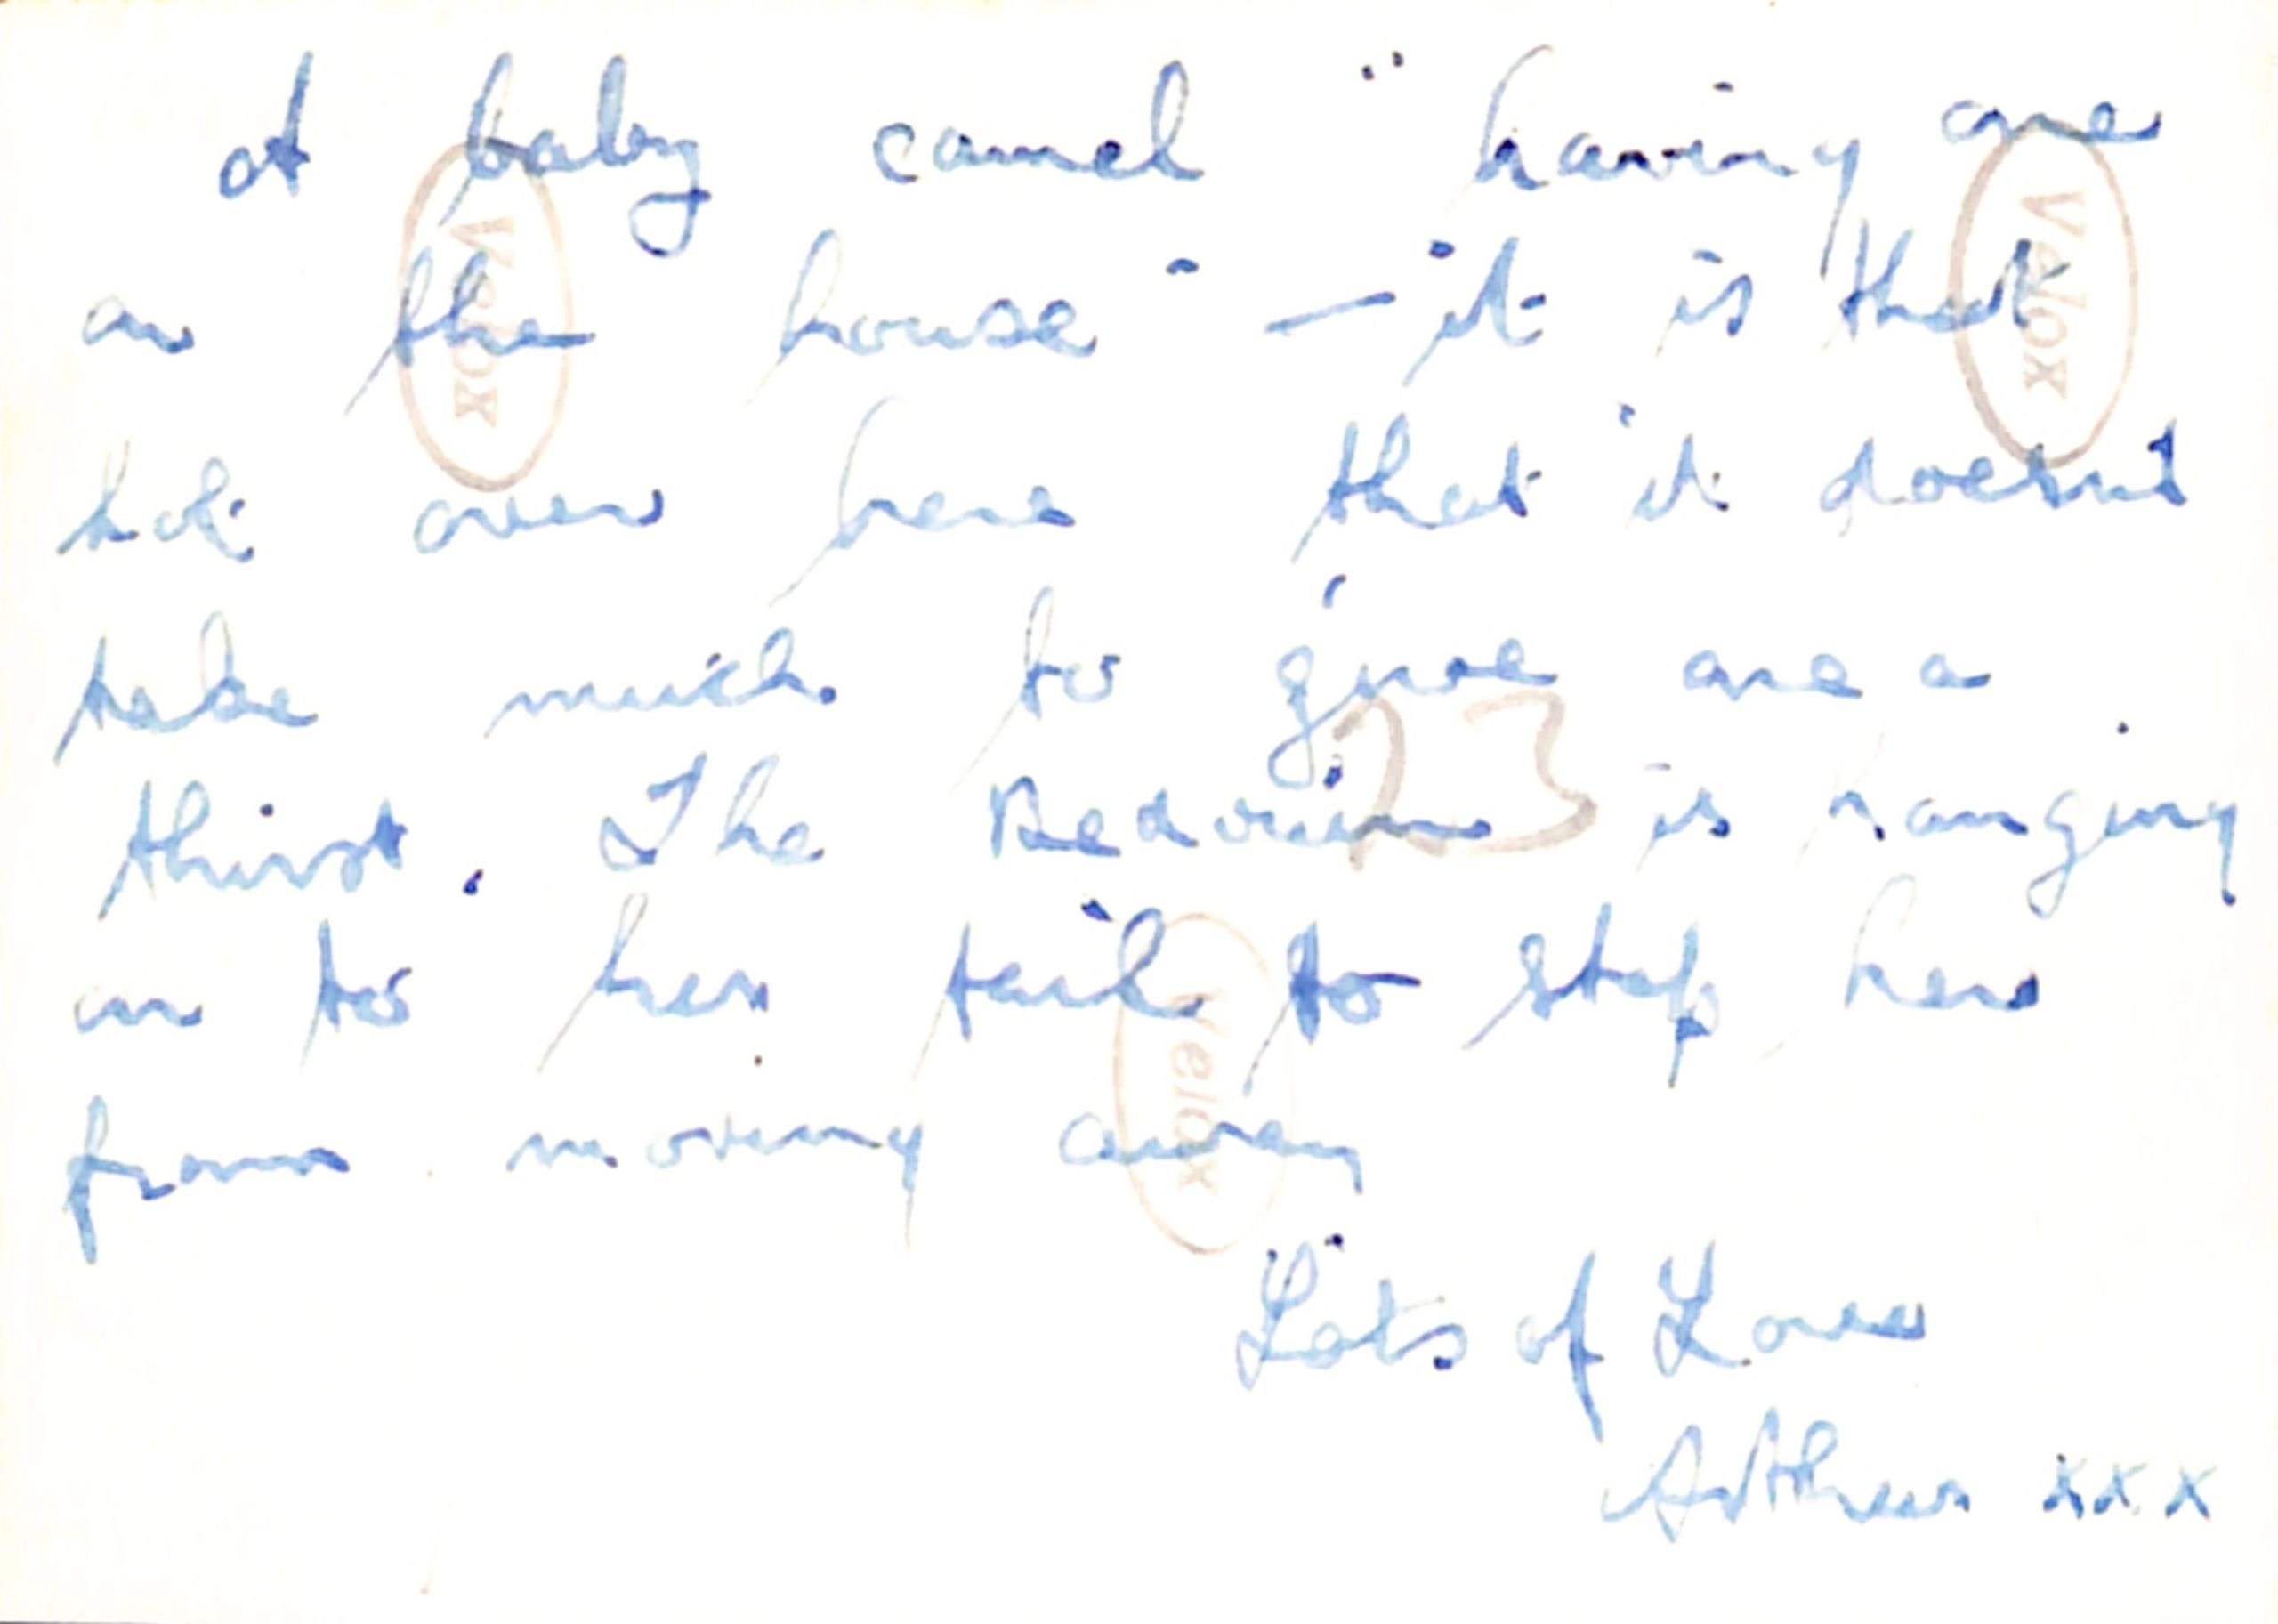 A baby camel "having one
on the house" — it is that
hot over here that it doesn't
take much to give one a
thirst. The Bedouin is hanging
on to her tail to stop her
from moving away
Lots of Love
Arthur xxx
Velox
Velox
23
Velox